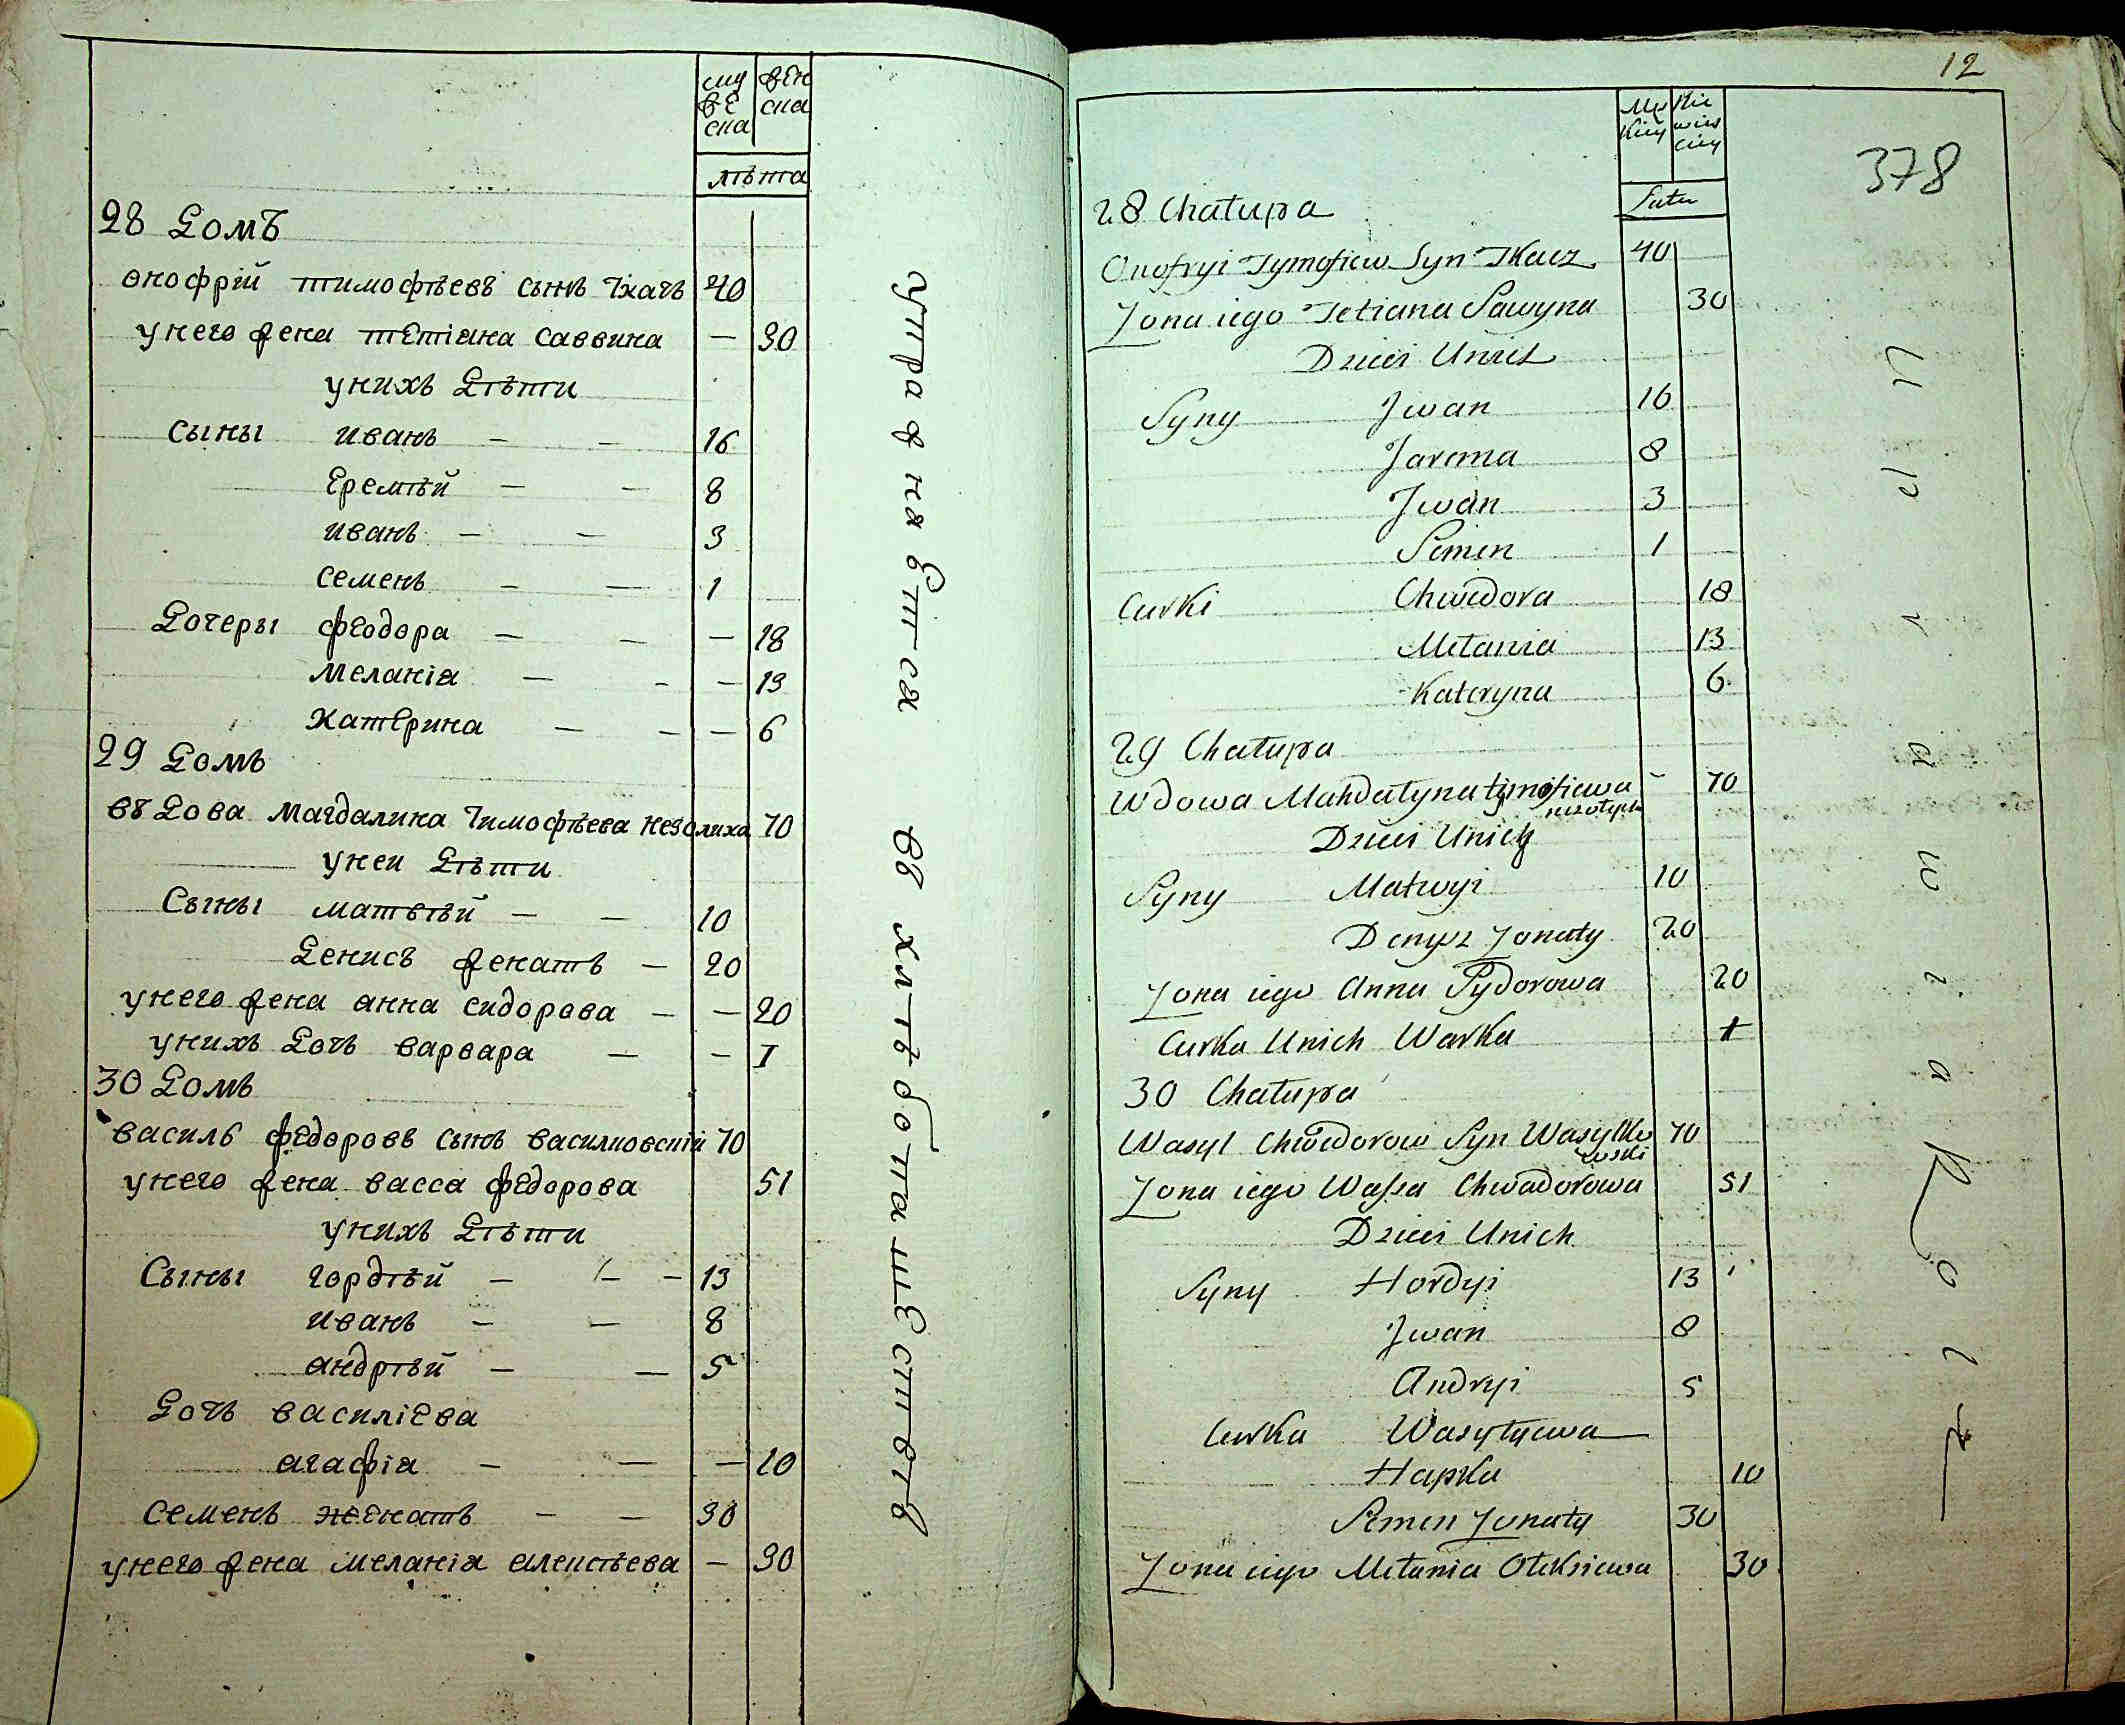 му
же
ска
жен
ска
лѣта
28 Домъ
онофрій тимофѣевъ сынъ Ткачъ 40
унего жена тетіана саввина — 30
унихъ Дѣти
Сыны иванъ — — 16
Еремѣй — — 8
иванъ — — 3
семенъ — — 1
Дочеры феодора — — — 18
меланіа — — — 13
Катерина — — — 6
29 Домъ
въдова магдалина Тимофѣева незолиха 70
унеи Дѣти
Сыны матвѣй — — 10
Денисъ женатъ — 20
унего жена анна сидорова — — 20
унихъ Дочъ варвара — — 1
30 Домъ
василь федоровъ сынъ василковскій 70
унего жена васса федорова 51
унихъ Дѣти
Сыны гордѣй — — — 13
иванъ — — 8
андрѣй — — 5
Дочъ василіева
агафіа — — — 10
семенъ жеенатъ — — 30
унего жена меланіа алексѣева — 30
упражняется въ хлѣбопашествѣ
12
378
Mę
skiey
Nie
wies
ciey
Latu
28 Chałupa
Onofryi Tymofiew Syn Tkacz 40
Zona iego Tetiana Sawyna 30
Dzieci Unich
Syny Jwan 16
Jarema 8
Jwan 3
Semen 1
Curki Chwedora 18
Mełania 13
Kateryna 6
29 Chałupa
Wdowa Mahdałyna tymofiewa 70
Dzieci Unich
Syny Matwyi 10
Denys Zonaty 20
Zona iego Anna Sydorowa 20
Curka Unich Warka 1
30 Chałupa
Wasyl Chwedorow Syn Wasylko 70
wski
Zona iego Wassa Chwedorowa 51
Dzieci Unich
Syny Hordyi 13
Jwan 8
Andryi 5
Curka Wasyłyewa
Hapka 10
Semen Zonaty 30
Zona iego Mełania Ołeksiewa 30
Uprawia Rolę